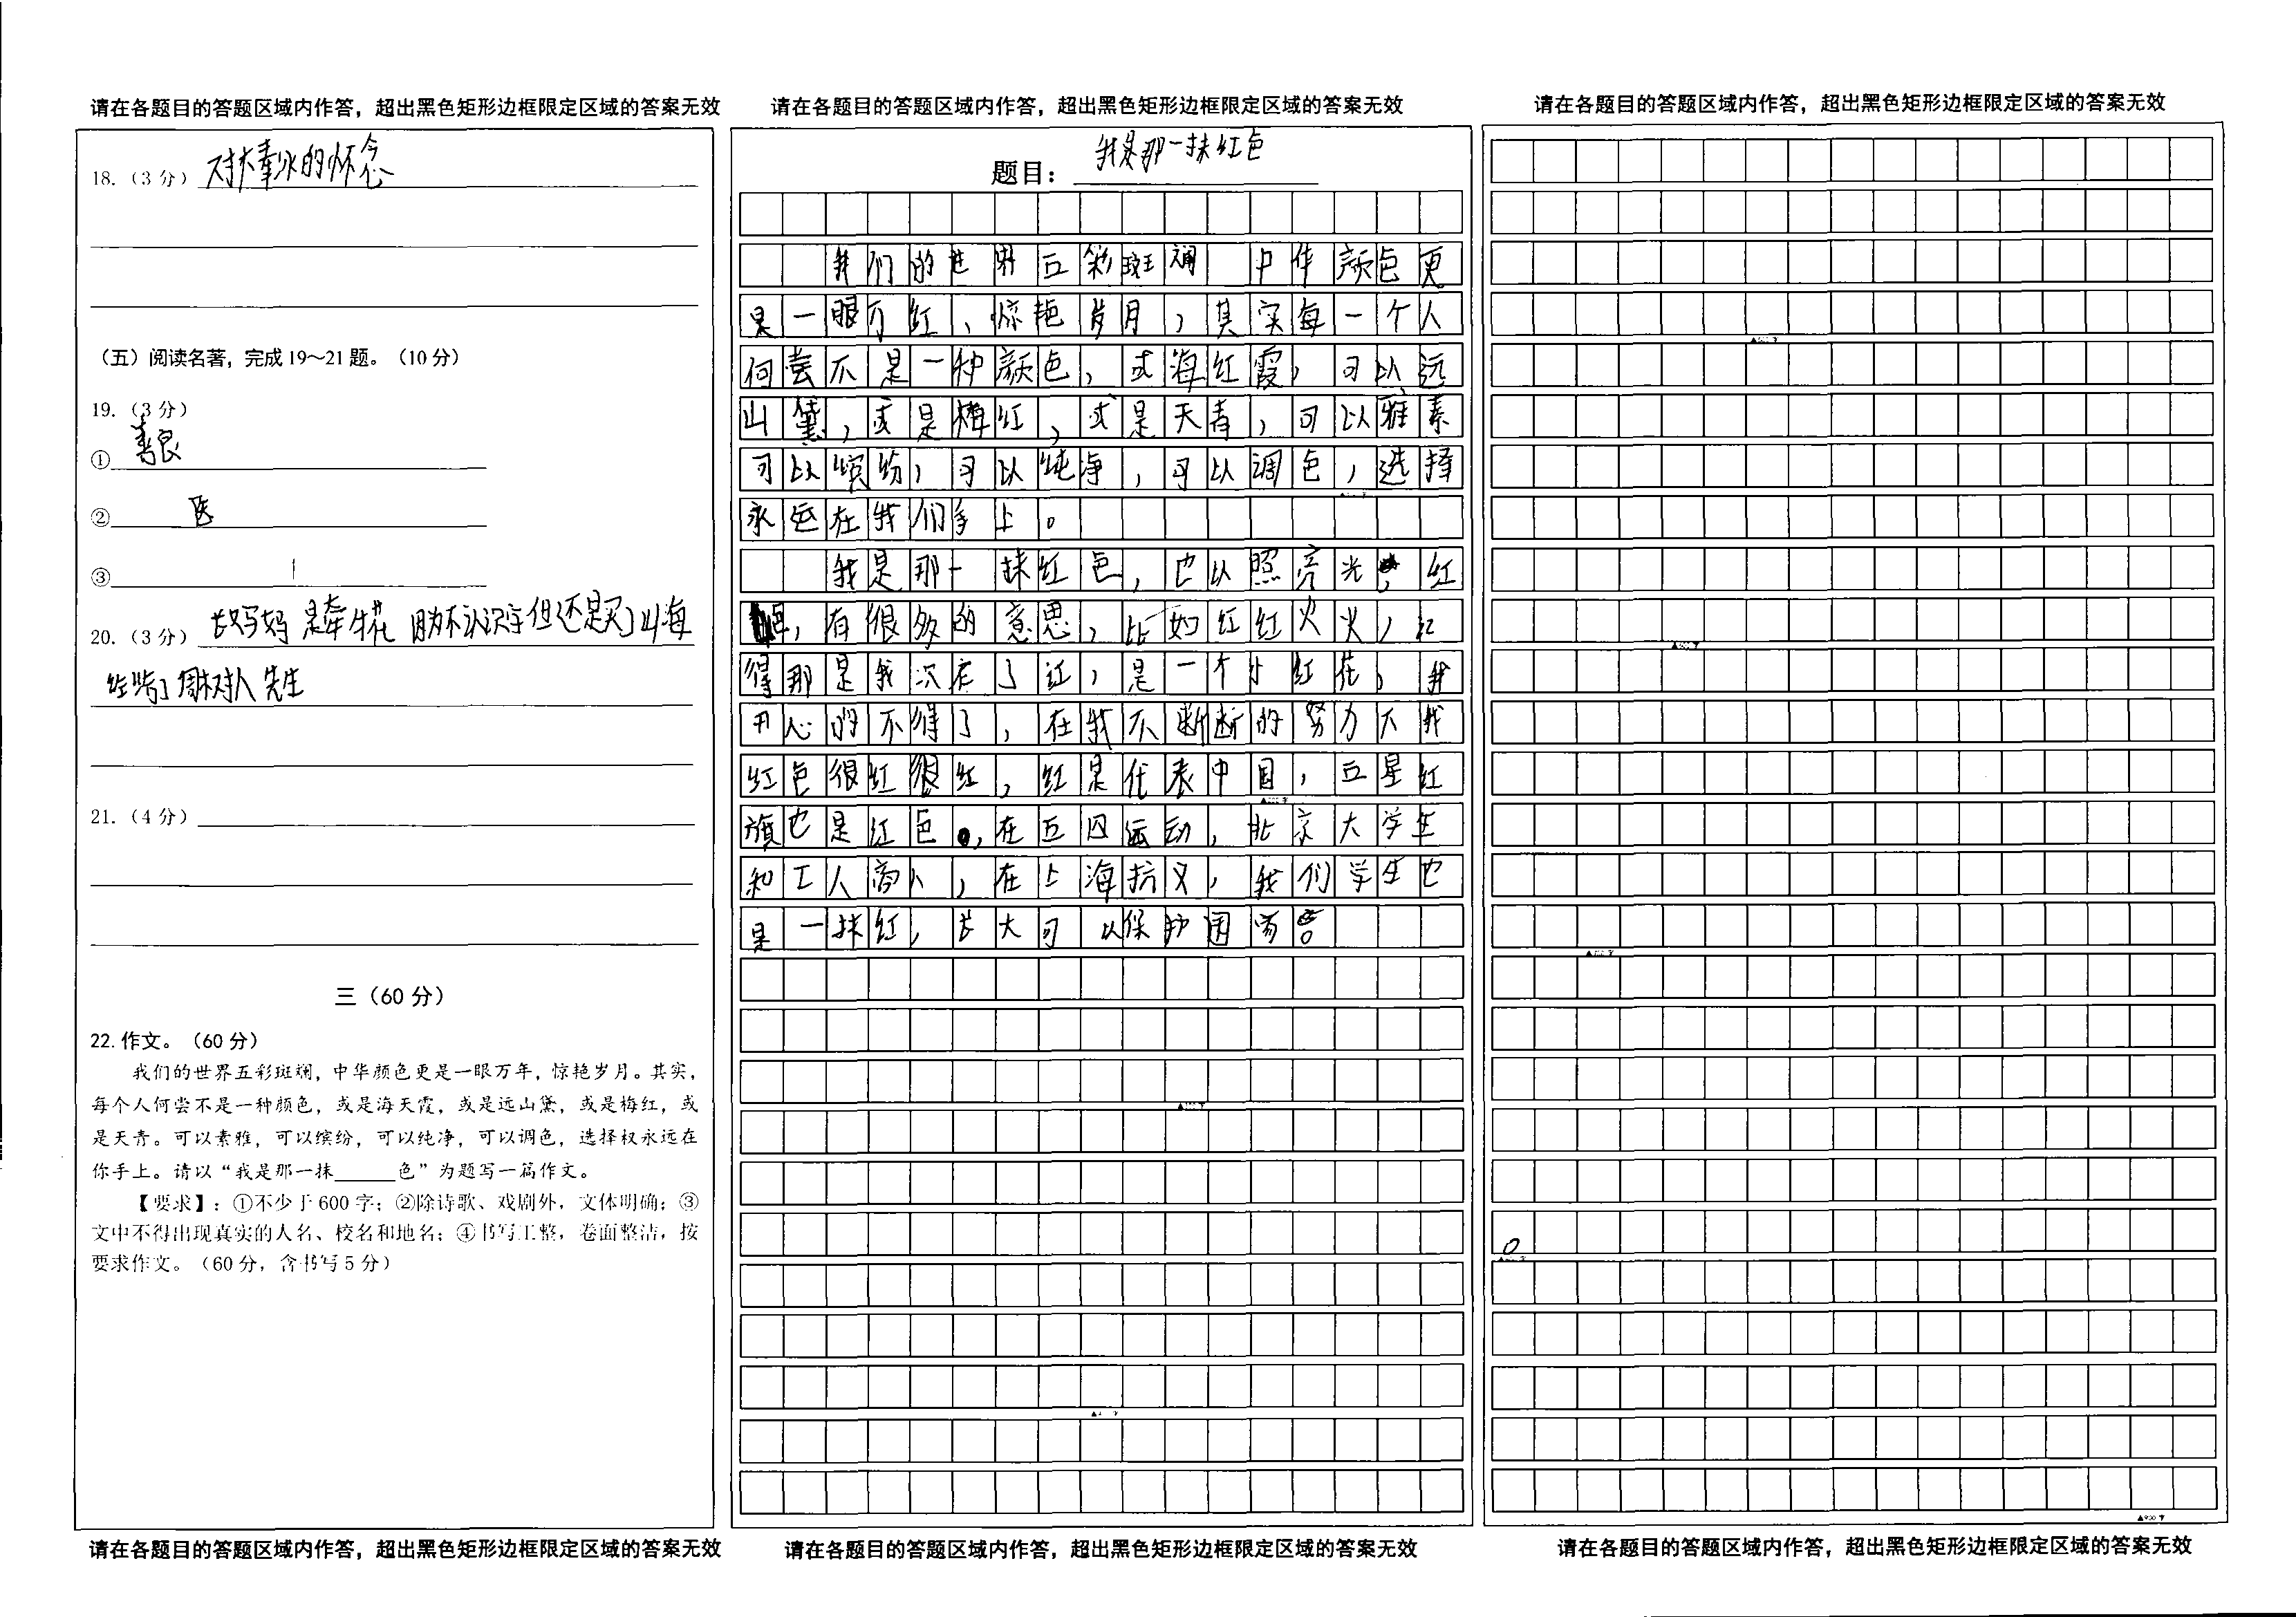 请在各题目的答题区域内作答，超出黑色矩形边框限定区域的答案无效
18.（3 分）的怀念
（五）阅读名著，完成 19～21 题。（10 分）
19.（3 分）
① 善良
② 医
③
20.（3 分）长妈妈 是牵牛花 因为不认识字但还是买了山海
先生
21.（4 分）
三（60 分）
22.作文。（60 分）
我们的世界五彩斑斓，中华颜色更是一眼万年，惊艳岁月。其实，
每个人何尝不是一种颜色，或是海天霞，或是远山黛，或是梅红，或
是天青。可以素雅，可以缤纷，可以纯净，可以调色，选择权永远在
你手上。请以“我是那一抹______色”为题写一篇作文。
【要求】：①不少于 600 字；②除诗歌、戏剧外，文体明确；③
文中不得出现真实的人名、校名和地名；④书写工整，卷面整洁，按
要求作文。（60 分，含书写 5 分）
请在各题目的答题区域内作答，超出黑色矩形边框限定区域的答案无效
请在各题目的答题区域内作答，超出黑色矩形边框限定区域的答案无效
题目：我是那一抹红色
我们的世界五彩斑斓 中华颜色更
是一眼万红，惊艳岁月，其实每一个人
何尝不是一种颜色，或海红霞，可以远
山黛，或是梅红，或是天青，可以雅素
可以缤纷，可以纯净，可以调色，选择
永远在我们手上。
我是那一抹红色，也以照亮光，红
色，有很多的意思，比如红红火火，记
得那是我次在了红，是一个小红花，我
开心的不得了，在我不断断的努力下我
红色很红很红，红是代表中国，五星红
旗也是红色，在五四运动，北京大学生
和工人商人，在上海抗义，我们学生也
是一抹红，长大可以保护国家。
请在各题目的答题区域内作答，超出黑色矩形边框限定区域的答案无效
请在各题目的答题区域内作答，超出黑色矩形边框限定区域的答案无效
▲900 字
请在各题目的答题区域内作答，超出黑色矩形边框限定区域的答案无效